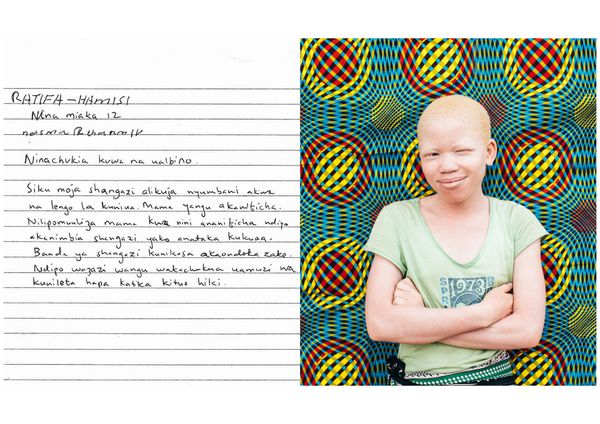 RATIFA – HAMISI
Nina miaka 12
nasoma
Ninachukia kuwa na ualbino.
Siku moja shangazi alikuja nyumbani akiwa
na lengo la kuniua. Mama yangu akanificha.
Nilipomuuliza mama kwa nini ananificha ndipo
akanimbia shangazi yako anataka kukuaa.
Baada ya shangazi kunikosa akaondoka zake.
Ndipo wazazi wangu wakachukua uamuzi wa
kunileta hapa katika kituo hiki.
1973